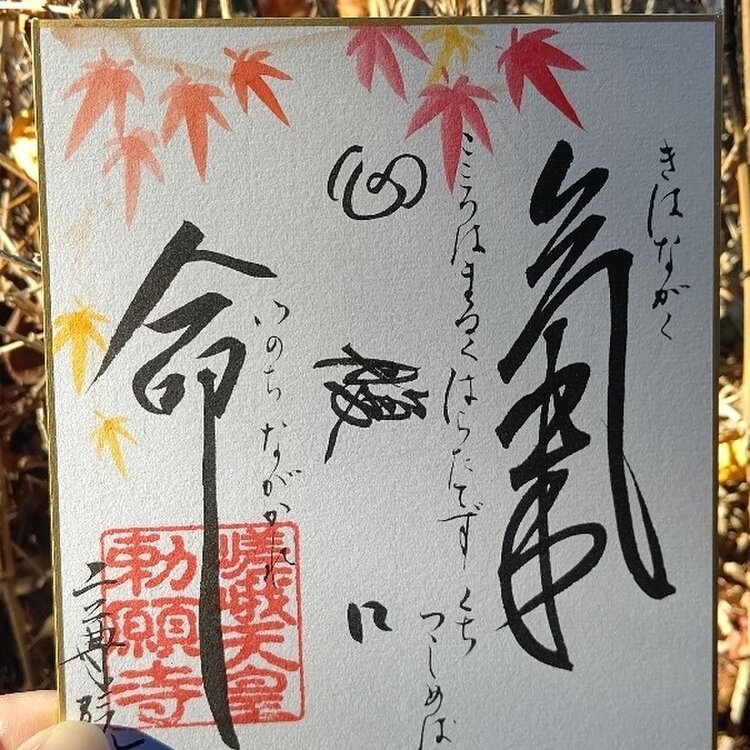 きはながく
氣
こころはまるく はらたてず くち
つゝしめば
心 腹 口
いのちながかれ
命
嵯峨天皇
勅願寺
二尊院